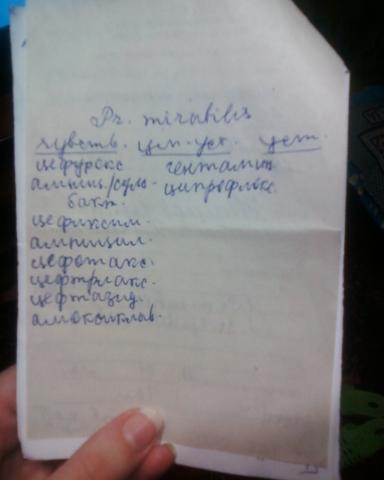 Pr. mirabilis
чувств. ум-уст. уст.
цефурокс гентамиц
ампиц/суль- ципрофлокс.
бакт.
цефиксим.
ампицил.
цефотакс.
цефтриакс.
цефтазид.
амоксиклав.